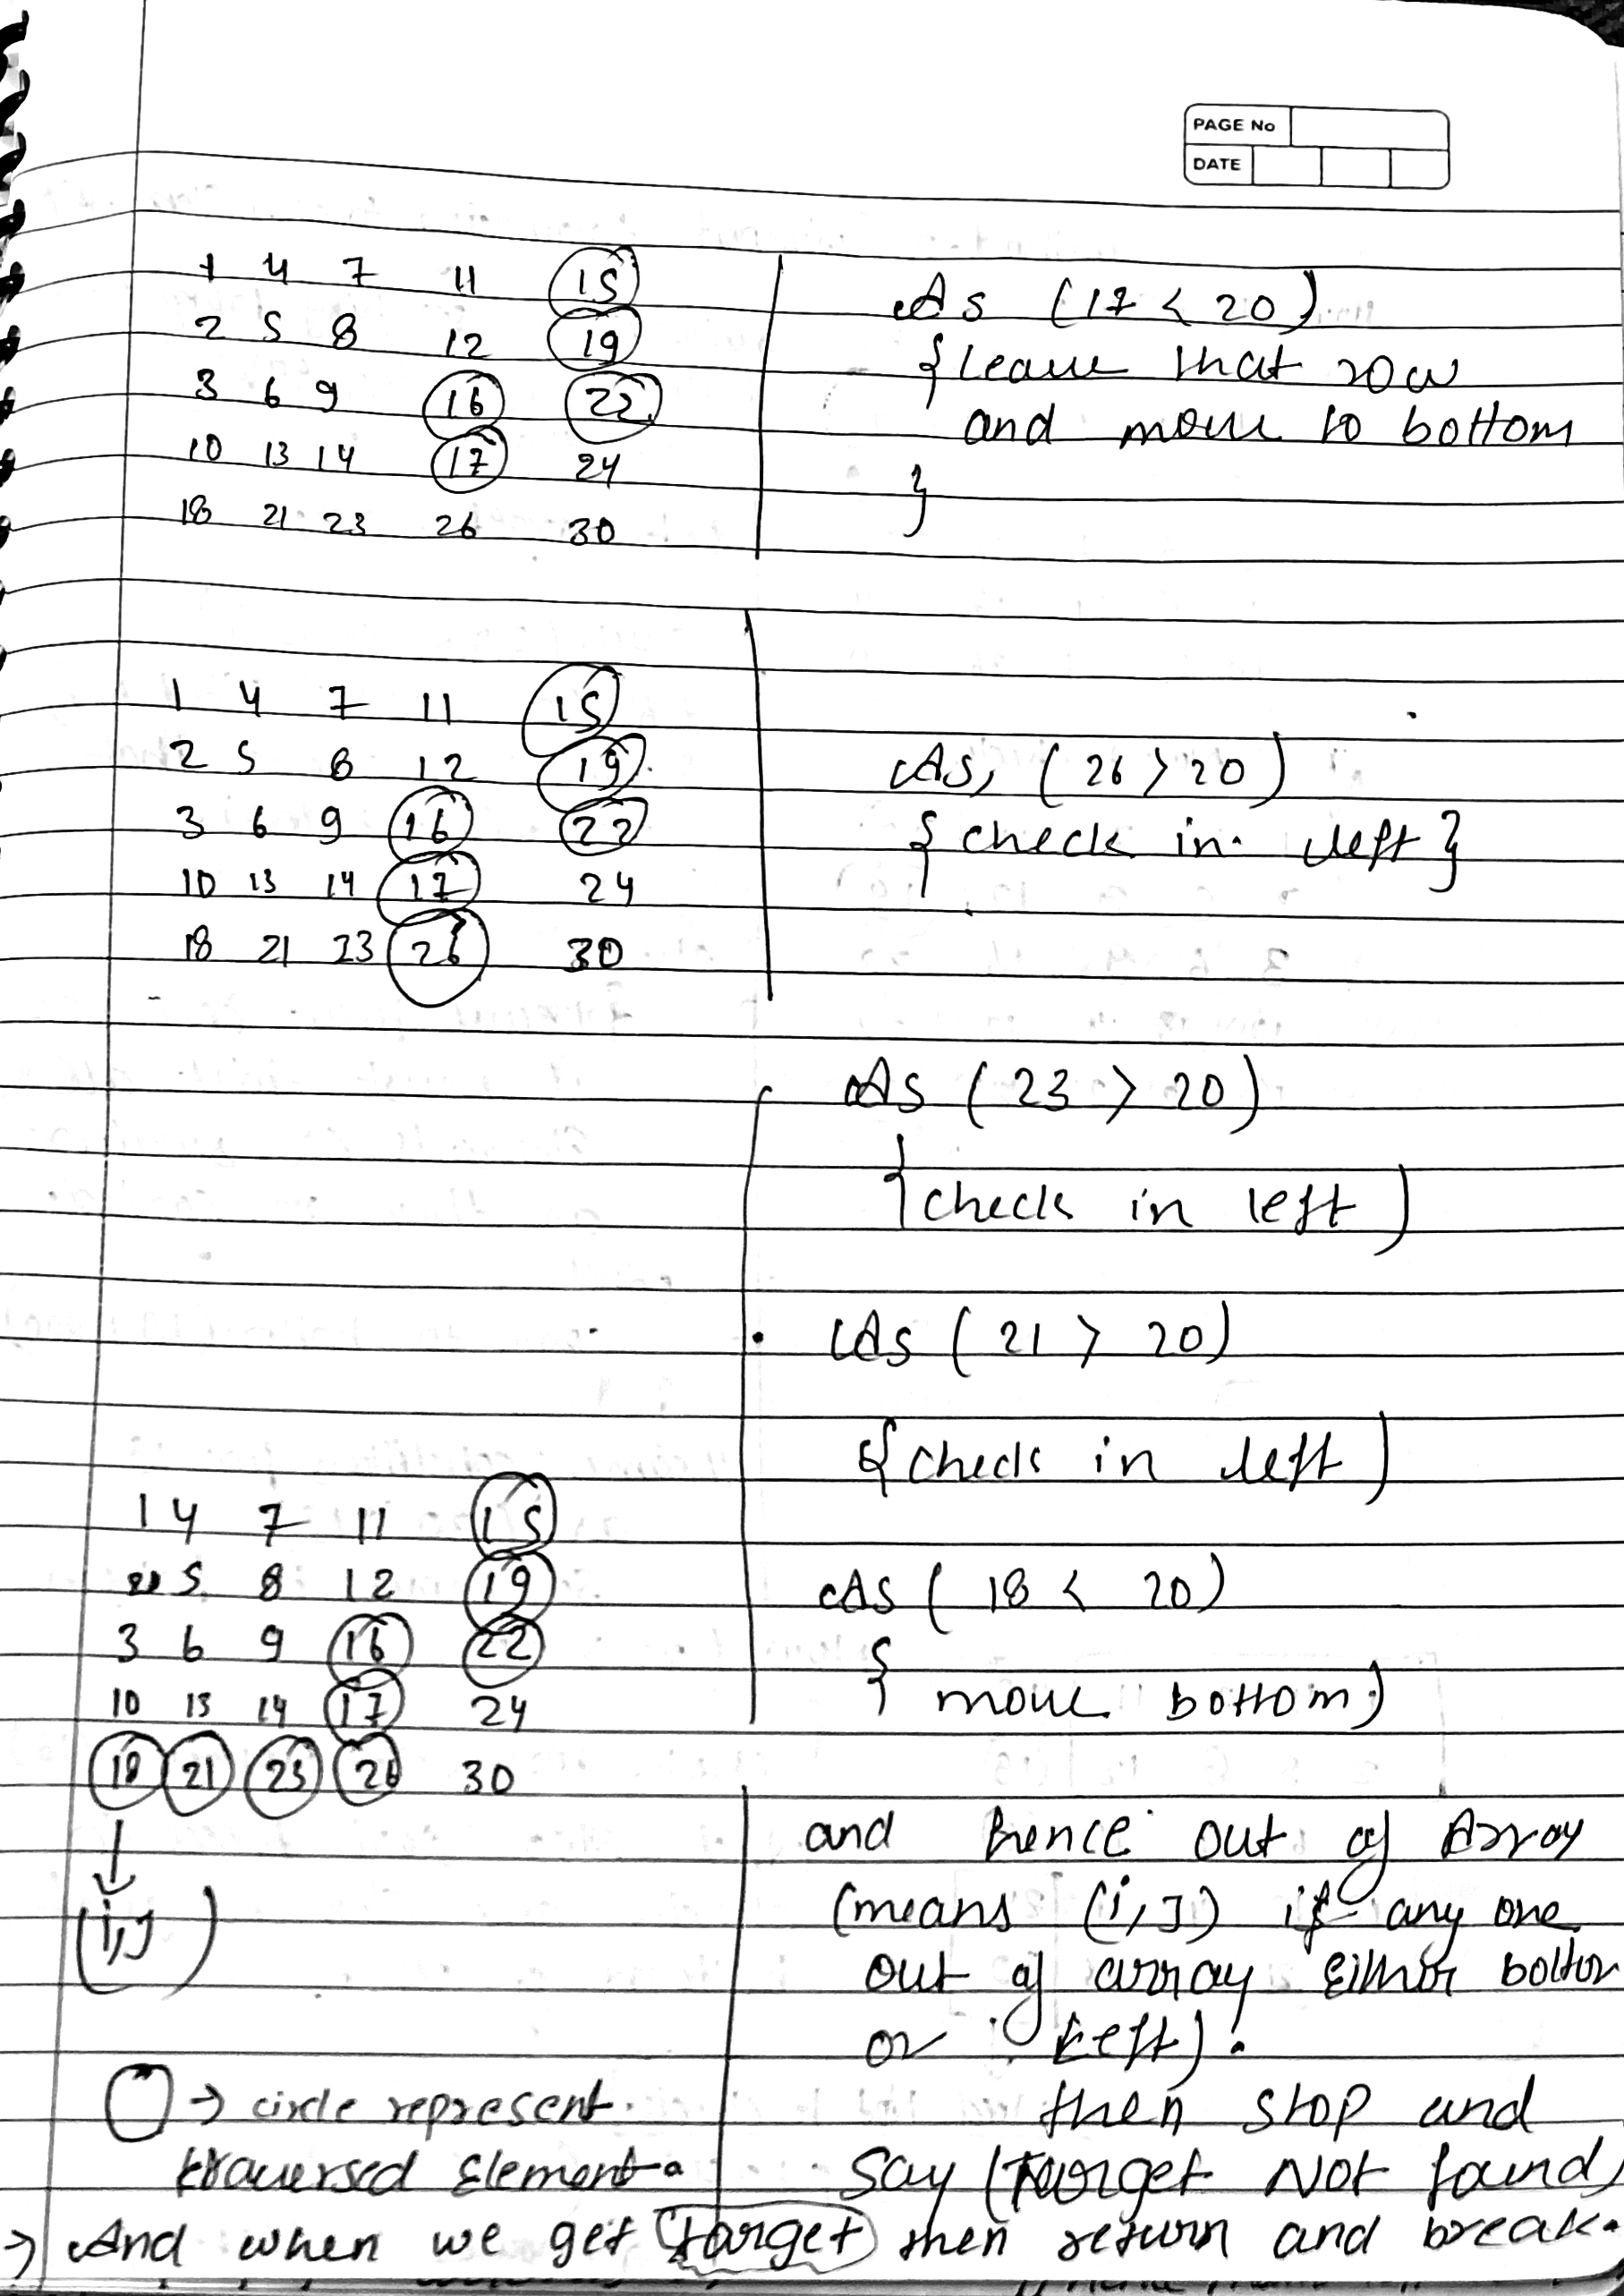 PAGE No
DATE
1 4 7 11 15
2 5 8 12 19
3 6 9 16 22
10 13 14 17 24
18 21 23 26 30
As (17 < 20)
{ leave that row
and move to bottom
}
1 4 7 11 15
2 5 8 12 19
3 6 9 16 22
10 13 14 17 24
18 21 23 26 30
As, (26 > 20)
{ check in left }
As (23 > 20)
{ check in left )
As (21 > 20)
{ check in left )
1 4 7 11 15
5 8 12 19
3 6 9 16 22
10 13 14 17 24
18 21 23 26 30
↓
(i,J)
As ( 18 < 20)
{ move bottom )
and hence out of Array
(means (i,J) if any one
out of array Either bottom
or Left).
then stop and
Say (Target Not found)
→ circle represent
traversed Element.
→ And when we get target then return and break.